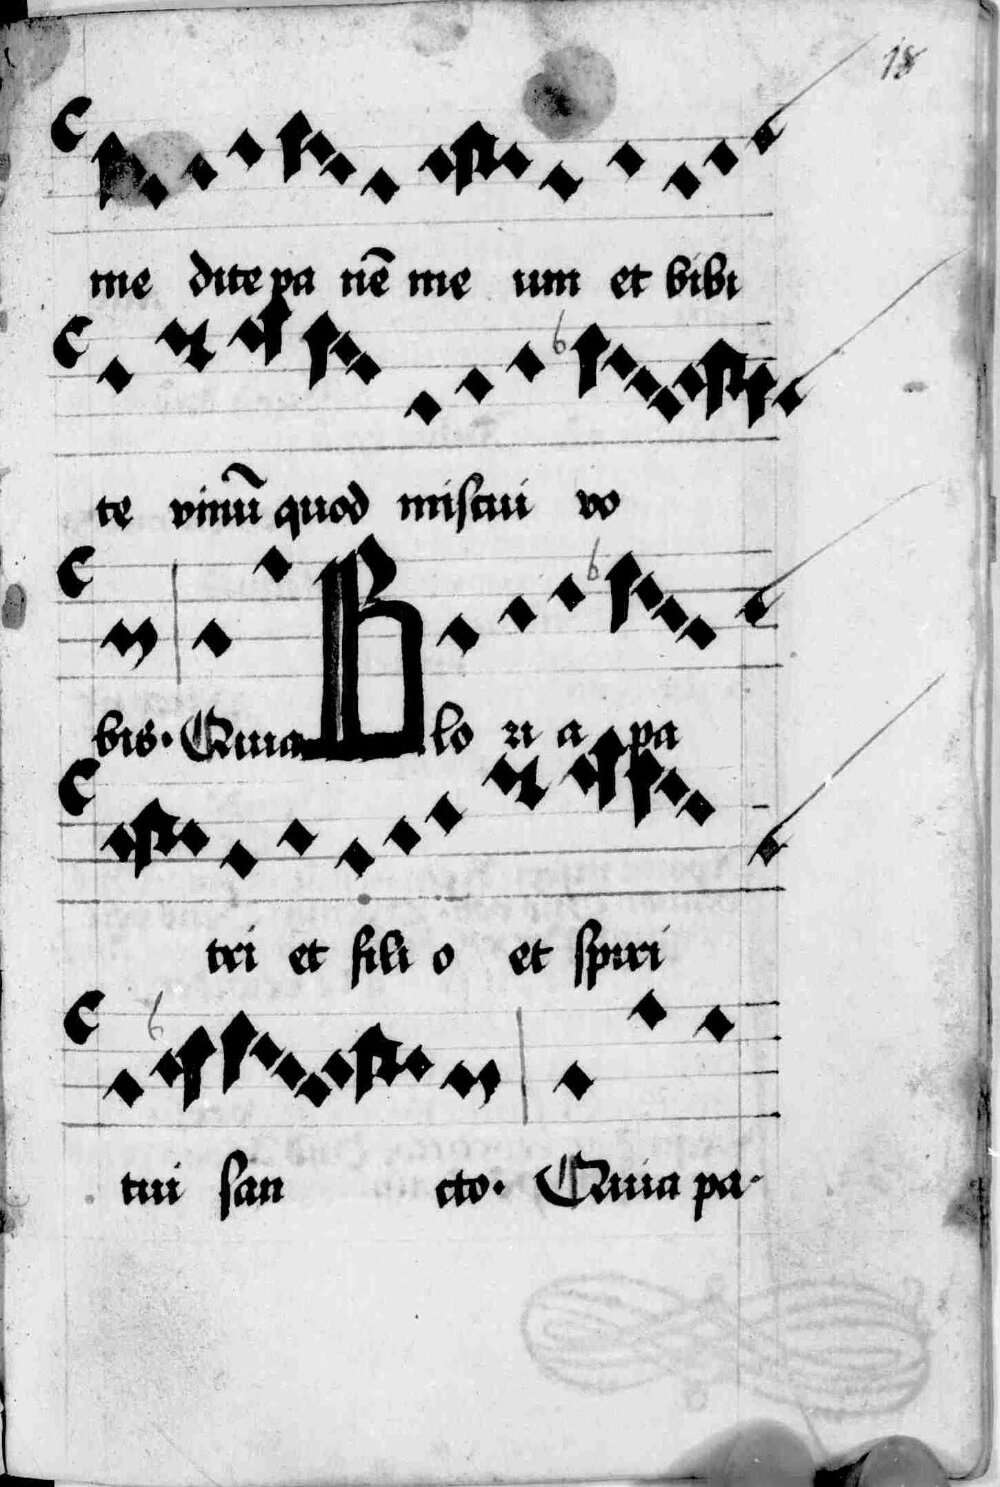 18
me dite pa nē me um et bibi
te vinū quod miscui vo
bis. Quia Glo ri a pa
tri et fili o et spiri
tui san cto. Quia pa.